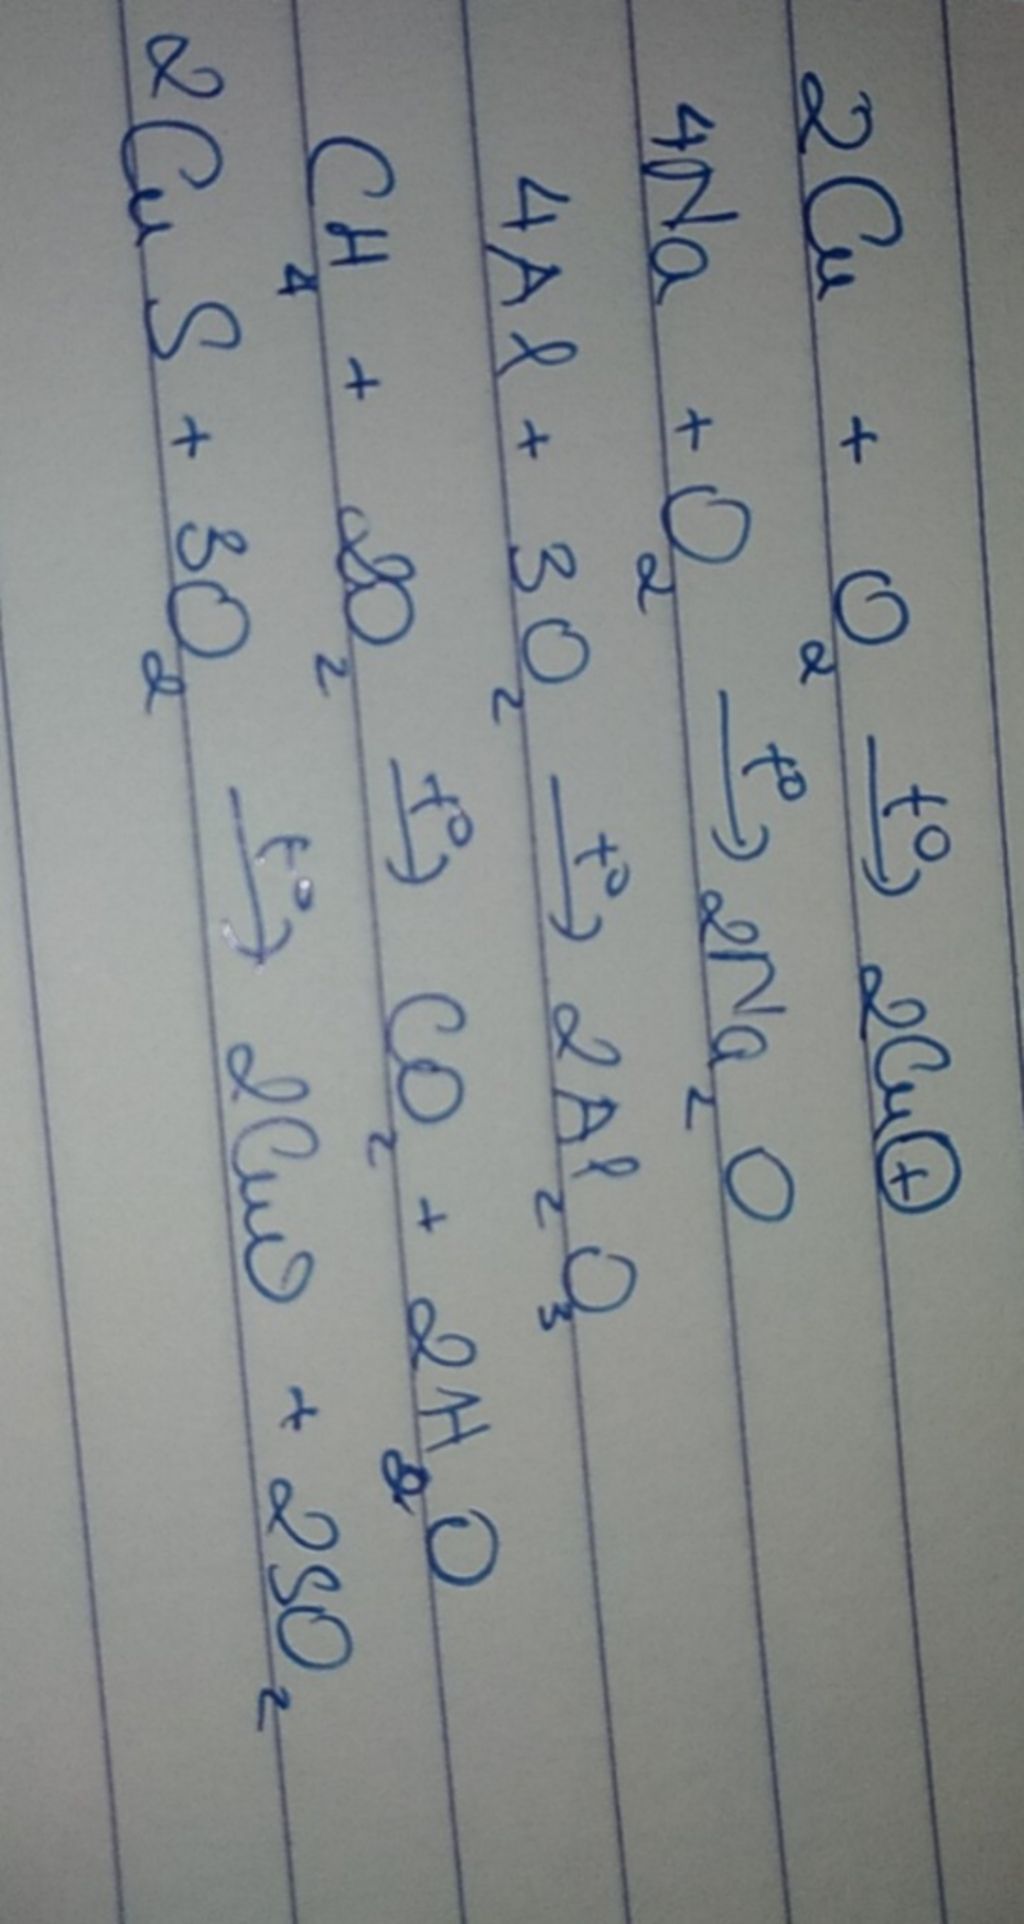 2Cu + O₂ →t° 2CuO
4Na + O₂ →t° 2Na₂O
4Al + 3O₂ →t° 2Al₂O₃
CH₄ + 2O₂ →t° CO₂ + 2H₂O
2CuS + 3O₂ →t° 2CuO + 2SO₂